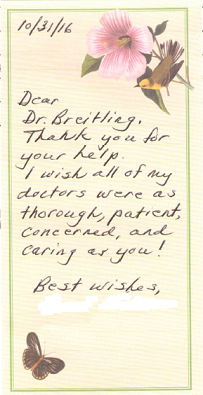 10/31/16
Dear
Dr. Breitling.
Thank you for
your help.
I wish all of my
doctors were as
thorough, patient,
concerned, and
caring as you!
Best wishes,